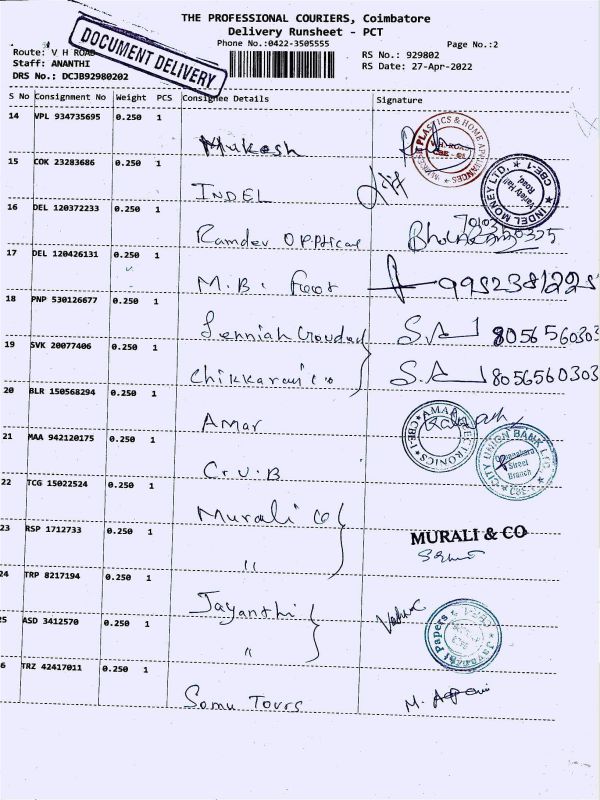 THE PROFESSIONAL COURIERS, Coimbatore
Delivery Runsheet - PCT
Phone No.:0422-3505555
Page No.:2
DOCUMENT DELIVERY
Route: V H ROAD
Staff: ANANTHI
DRS No.: DCJB92980202
RS No.: 929802
RS Date: 27-Apr-2022
S No Consignment No Weight PCS Consignee Details Signature
14 VPL 934735695 0.250 1
Mukesh
PLASTICS & HOME APPLIANCES
15 COK 23283686 0.250 1
INDEL
INDEL MONEY LTD. CBE-1
Variety Hall Road,
16 DEL 120372233 0.250 1
Ramdev Opptical
17 DEL 120426131 0.250 1
M.B. Foot 9952381225
18 PNP 530126677 0.250 1
S.A 8056560303
19 SVK 20077406 0.250 1
Chikkarani Co S.A 8056560303
20 BLR 150568294 0.250 1
Amar
AMAR ELECTRONICS CBE-1
21 MAA 942120175 0.250 1
C.U.B
CITY UNION BANK LTD. CBE-1
Street
Branch
22 TCG 15022524 0.250 1
Murali Co
MURALI & CO
23 RSP 1712733 0.250 1
"
24 TRP 8217194 0.250 1
Jayanthi
Papers
5 ASD 3412570 0.250 1
"
6 TRZ 42417011 0.250 1
Somu Tours